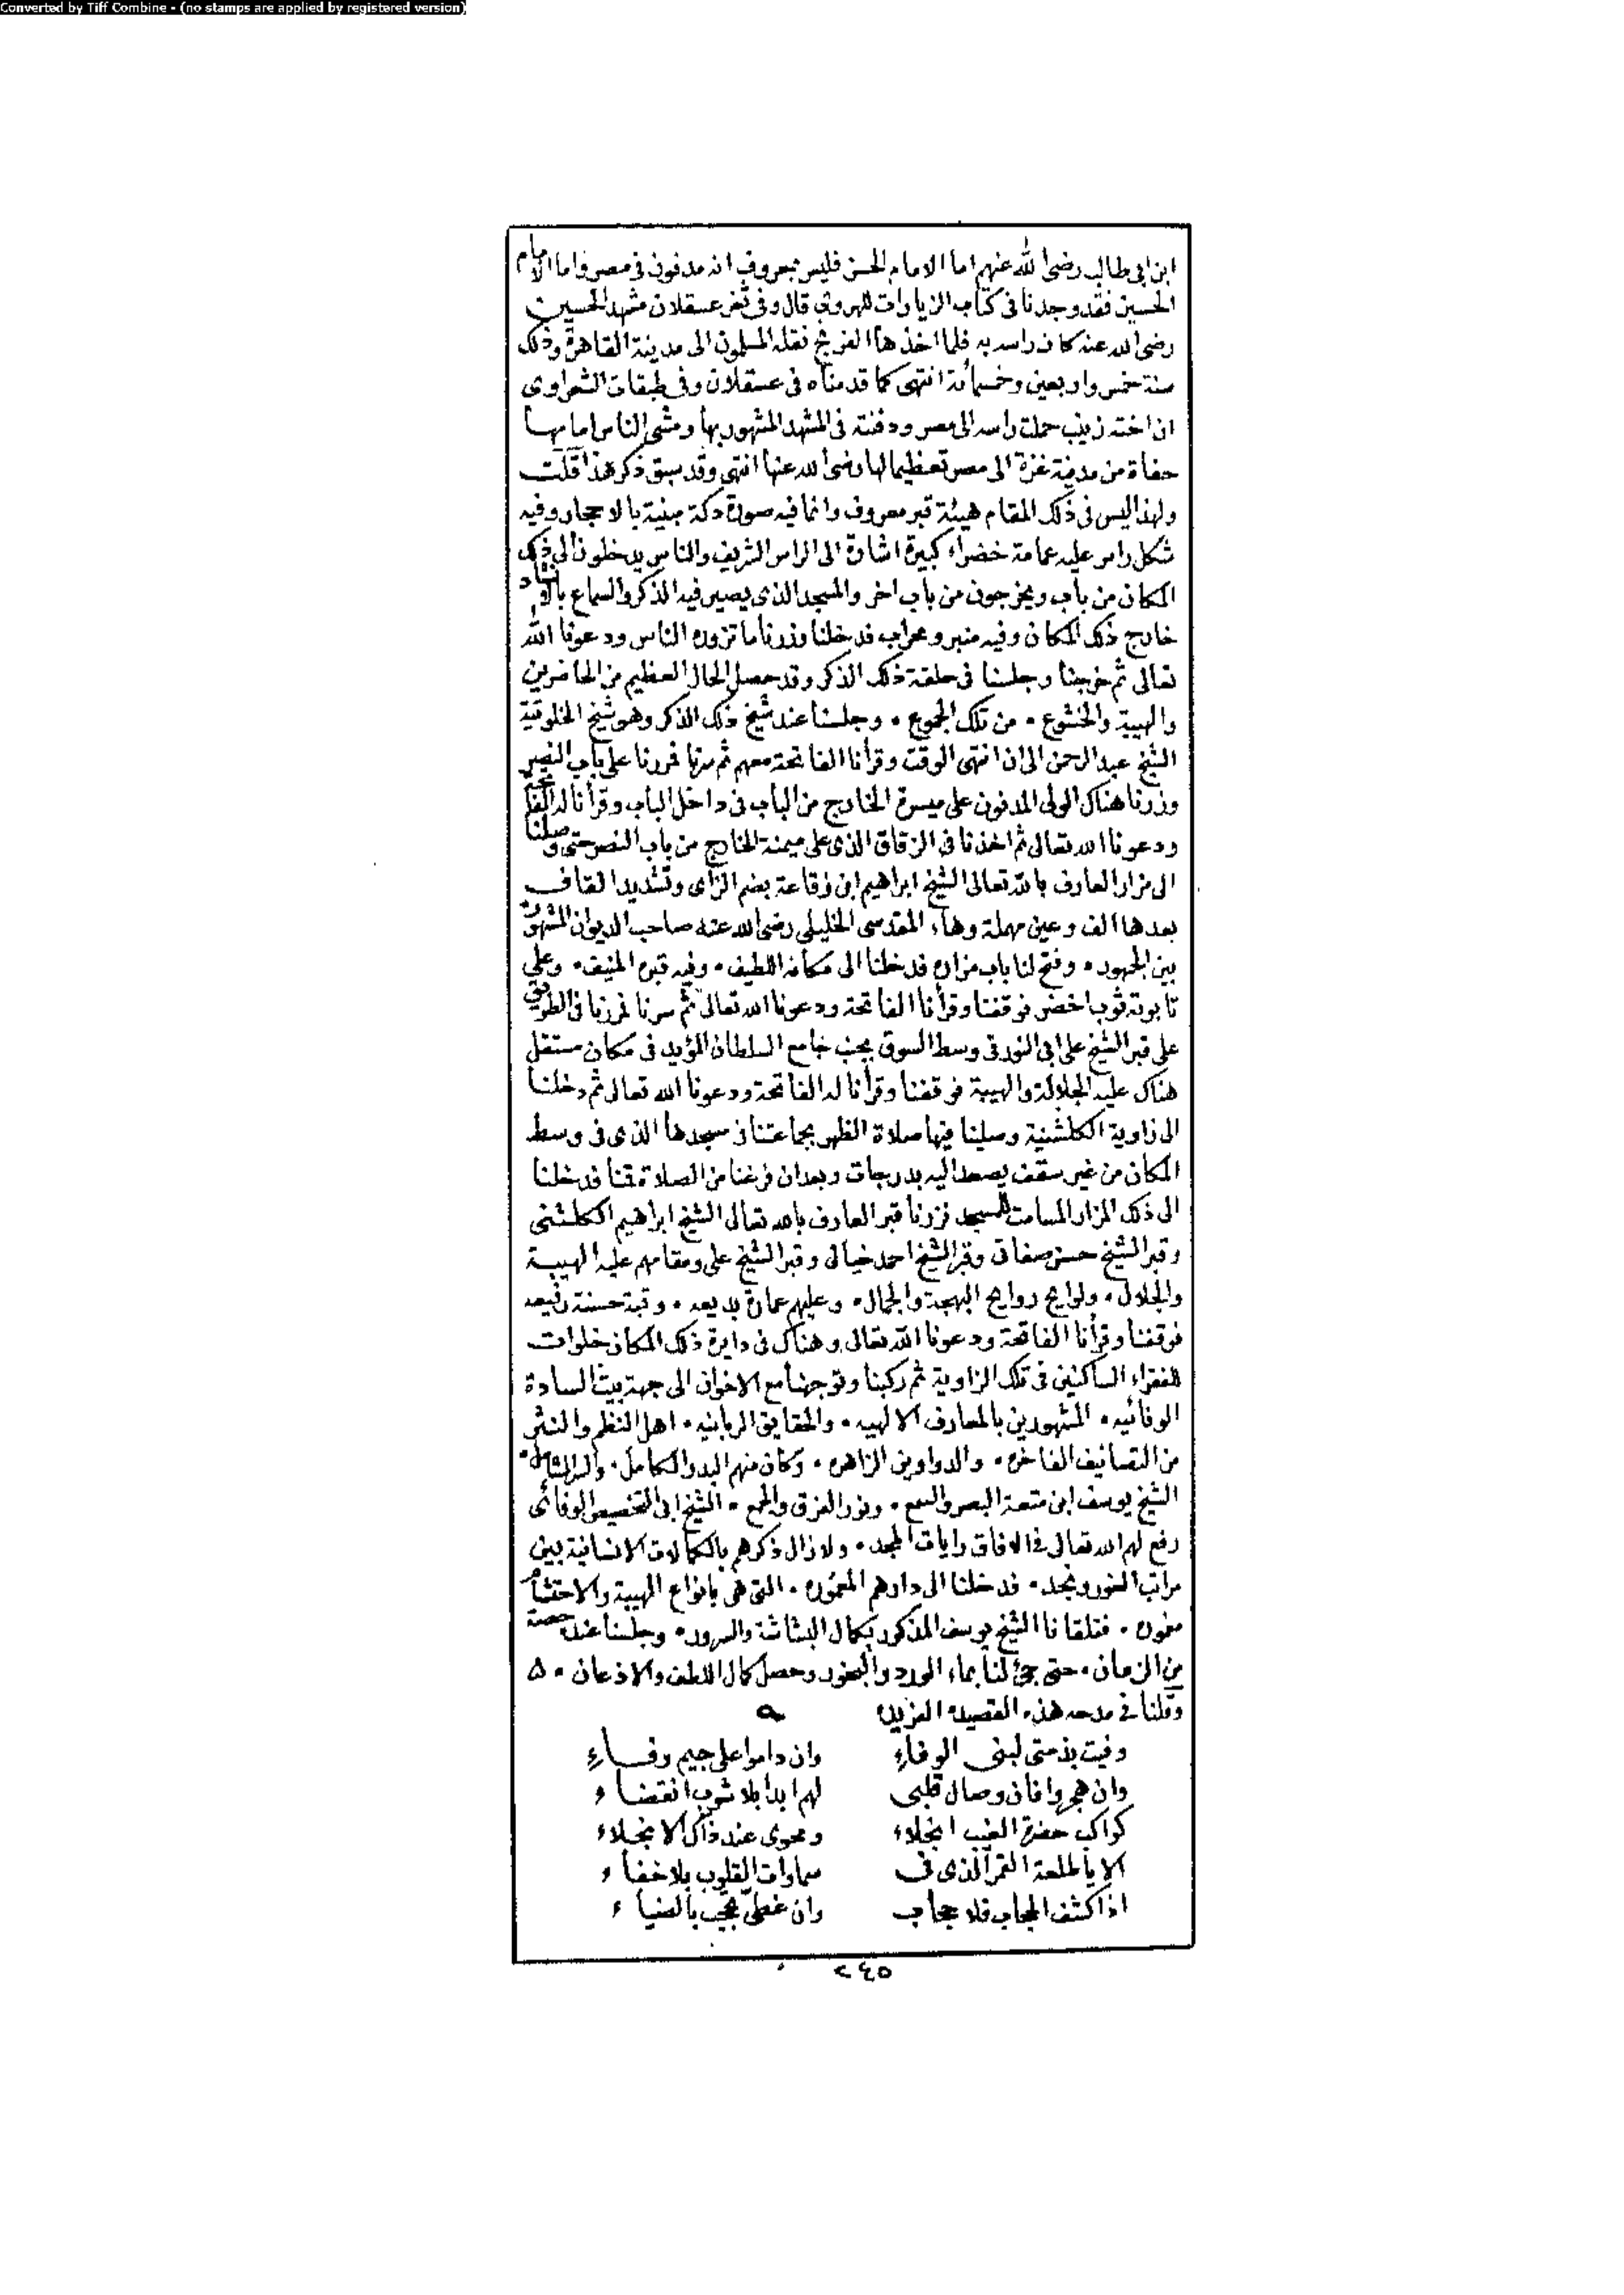 Converted by Tiff Combine - (no stamps are applied by registered version)
ابن ابى طالب رضى الله عنهم اما الامام الحسن فليس بمعروف انه مدفون فى مصر واما الامام
الحسين فقد وجدنا فى كتاب الزيارات للهروى قال وفى ثغر عسقلان مشهد الحسين
رضى الله عنه كان راسه به فلما اخذها الفرنج نقله المسلمون الى مدينة القاهرة وذلك
سنة خمس واربعين وخمسمائة انتهى كما قدمناه فى عسقلان وفى طبقات الشعراوى
ان اخته زينب حملت راسه الى مصر ودفنته فى المشهد المشهور بها ومشى الناس امامها
حفاة من مدينة غزة الى مصر تعظيما لها رضى الله عنها انتهى وقد سبق ذكر هذا قلت
ولهذا ليس فى ذلك المقام هيئة قبر معروف وانما فيه صورة دكة مبنية بالاحجار وفيه
شكل راس عليه عمامة خضراء كبيرة اشارة الى الراس الشريف والناس يدخلون الى ذلك
المكان من باب ويخرجون من باب اخر والمسجد الذى يصير فيه الذكر والسماع بالانشاد
خارج ذلك المكان وفيه منبر ومحراب فدخلنا وزرنا ما تزوره الناس ودعونا الله
تعالى ثم خرجنا وجلسنا فى حلقة ذلك الذكر وقد حصل الحال العظيم من الحاضرين
والهيبة والخشوع • من تلك الجموع • وجلسنا عند شيخ ذلك الذكر وهو شيخ الخلوتية
الشيخ عبد الرحمن الى ان انتهى الوقت وقرأنا الفاتحة معهم ثم سرنا فمررنا على باب النصر
وزرنا هناك الولى المدفون على ميسرة الخارج من الباب فى داخل الباب وقرأنا له الفاتحة
ودعونا الله تعالى ثم اخذنا فى الزقاق الذى على ميمنة الخارج من باب النصر حتى وصلنا
الى مزار العارف بالله تعالى الشيخ ابراهيم ابن زقاعة بضم الزاى وتشديد القاف
بعدها الف وعين مهملة وهاء المقدسى الخليلى رضى الله عنه صاحب الديوان المشهور
بين الجمهور • وفتح لنا باب مزاره فدخلنا الى مكانه اللطيف • وفيه قبره المنيف • وعلى
تابوته ثوب اخضر فوقفنا وقرأنا الفاتحة ودعونا الله تعالى ثم سرنا فمررنا فى الطريق
على قبر الشيخ على ابى النور فى وسط السوق بجنب جامع السلطان المؤيد فى مكان مستقل
هناك عليه الجلالة والهيبة فوقفنا وقرأنا له الفاتحة ودعونا الله تعالى ثم دخلنا
الى زاوية الكلشنية وصلينا فيها صلاة الظهر بجماعتنا فى مسجدها الذى فى وسط
المكان من غير سقف يصعد اليه بدرجات وبعد ان فرغنا من الصلاة قمنا فدخلنا
الى ذلك المزار المسامت للمسجد فزرنا قبر العارف بالله تعالى الشيخ ابراهيم الكلشنى
وقبر الشيخ حسن صفاتى وقبر الشيخ احمد خيالى وقبر الشيخ على ومقامهم عليه الهيبة
والجلال • ولوايح روايح البهجة والجمال • وعليهم عمارة بديعه • وقبة حسنة رفيعه
فوقفنا وقرأنا الفاتحة ودعونا الله تعالى وهناك فى دايرة ذلك المكان خلوات
للفقراء الساكنين فى تلك الزاوية ثم ركبنا وتوجهنا مع الاخوان الى جهة بيت السادة
الوفائيه • المشهورين بالمعارف الالهيه • والحقايق الربانيه • اهل النظم والنثر
من التصانيف الفاخره • والدواوين الزاهره • وكان منهم البدر الكامل •
الشيخ يوسف ابن متعة البصر والسمع • ونور الفرق والجمع • الشيخ ابى التخصيص الوفائى
رفع لهم الله تعالى فى الافاق رايات المجد • ولا زال ذكرهم بالكمالات الانسانية بين
مراتب الغور ونجد • فدخلنا الى دارهم المعموره • التى هى بانواع الهيبة والاحتشام
مغموره • فتلقانا الشيخ يوسف المذكور بكمال البشاشة والسرور • وجلسنا عنده حصة
من الزمان • حتى جئ لنا بماء الورد والبخور وحصل كمال اللطف والاذعان •
وقلنا فى مدحه هذه القصيدة الفريده
وفيت بذمتى لبنى الوفاء وان داموا على جيم وفاء
وان هجروا فان وصال قلبى لهم ابدا بلا شوب انقضاء
كواكب حضرة الغيب انجلاء ومحوى عند ذاك الانجلاء
الا يا طلعة القمر الذى فى سماوات القلوب بلا خفاء
اذا كشف الحجاب فلا حجاب وان غطى تحجب بالضياء
٢٤٥